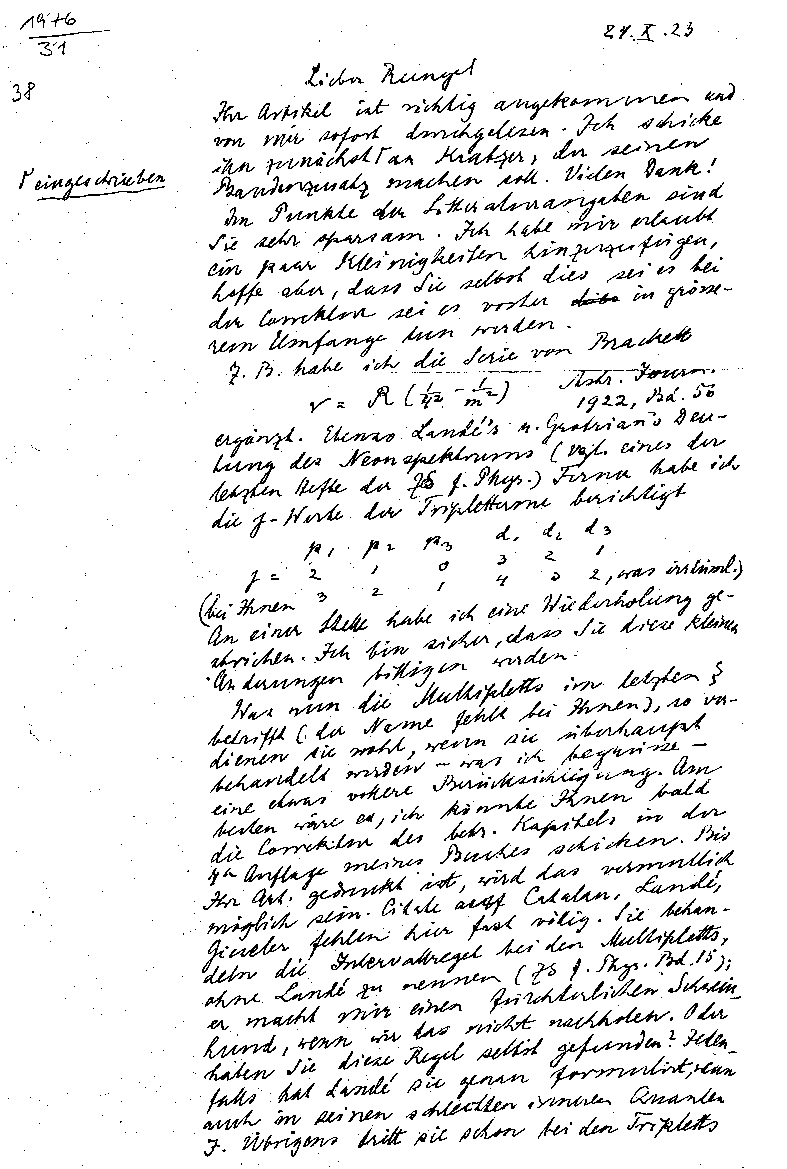 1976
31
24.X.23
38
Lieber Runge!
Ihr Artikel ist richtig angekommen und
von mir sofort durchgelesen. Ich schicke
ihn zunächst Γ an Kratzer, der seinen
Γ eingeschrieben
Bandenzusatz machen soll. Vielen Dank!
Im Punkte der Litteraturangaben sind
Sie sehr sparsam. Ich habe mir erlaubt
ein paar Kleinigkeiten hinzuzufügen,
hoffe aber, dass Sie selbst dies sei es bei
der Correktur sei es vorher in grösse-
rem Umfange tun werden.
Z. B. habe ich die Serie von Brackett
ν = R (1/4² - 1/m²) Astr. Journ.
1922, Bd. 56
ergänzt. Ebenso Landé's u. Grotrian's Deu-
tung des Neonspektrums (vgl. eines der
letzten Hefte der ZS f. Phys.) Ferner habe ich
die j-Werte der Tripletterme berichtigt
p₁ p₂ p₃ d₁ d₂ d₃
j = 2 1 0 3 2 1
(bei Ihnen 3 2 1 4 3 2, was irrtüml.)
An einer Stelle habe ich eine Wiederholung ge-
strichen. Ich bin sicher, dass Sie diese kleinen
Änderungen billigen werden.
Was nun die Multipletts im letzten §
betrifft (der Name fehlt bei Ihnen), so ver-
dienen sie wohl, wenn sie überhaupt
behandelt werden – was ich begrüsse –
eine etwas vollere Berücksichtigung. Am
besten wäre es, ich könnte Ihnen bald
die Correktur des betr. Kapitels in der
4ten Auflage meines Buches schicken. Bis
Ihr Art. gedruckt ist, wird das vermutlich
möglich sein. Citate auf Catalan, Landé,
Gieseler fehlen hier fast völlig. Sie behan-
deln die Intervallregel bei den Multipletts,
ohne Landé zu nennen (ZS f. Phys. Bd. 15);
er macht mir einen fürchterlichen Schwein-
hund, wenn wir das nicht nachholen. Oder
haben Sie diese Regel selbst gefunden? Jeden-
falls hat Landé sie genau formulirt, wenn
auch in seinen schlechten inneren Quanten
J. Übrigens tritt sie schon bei den Tripletts